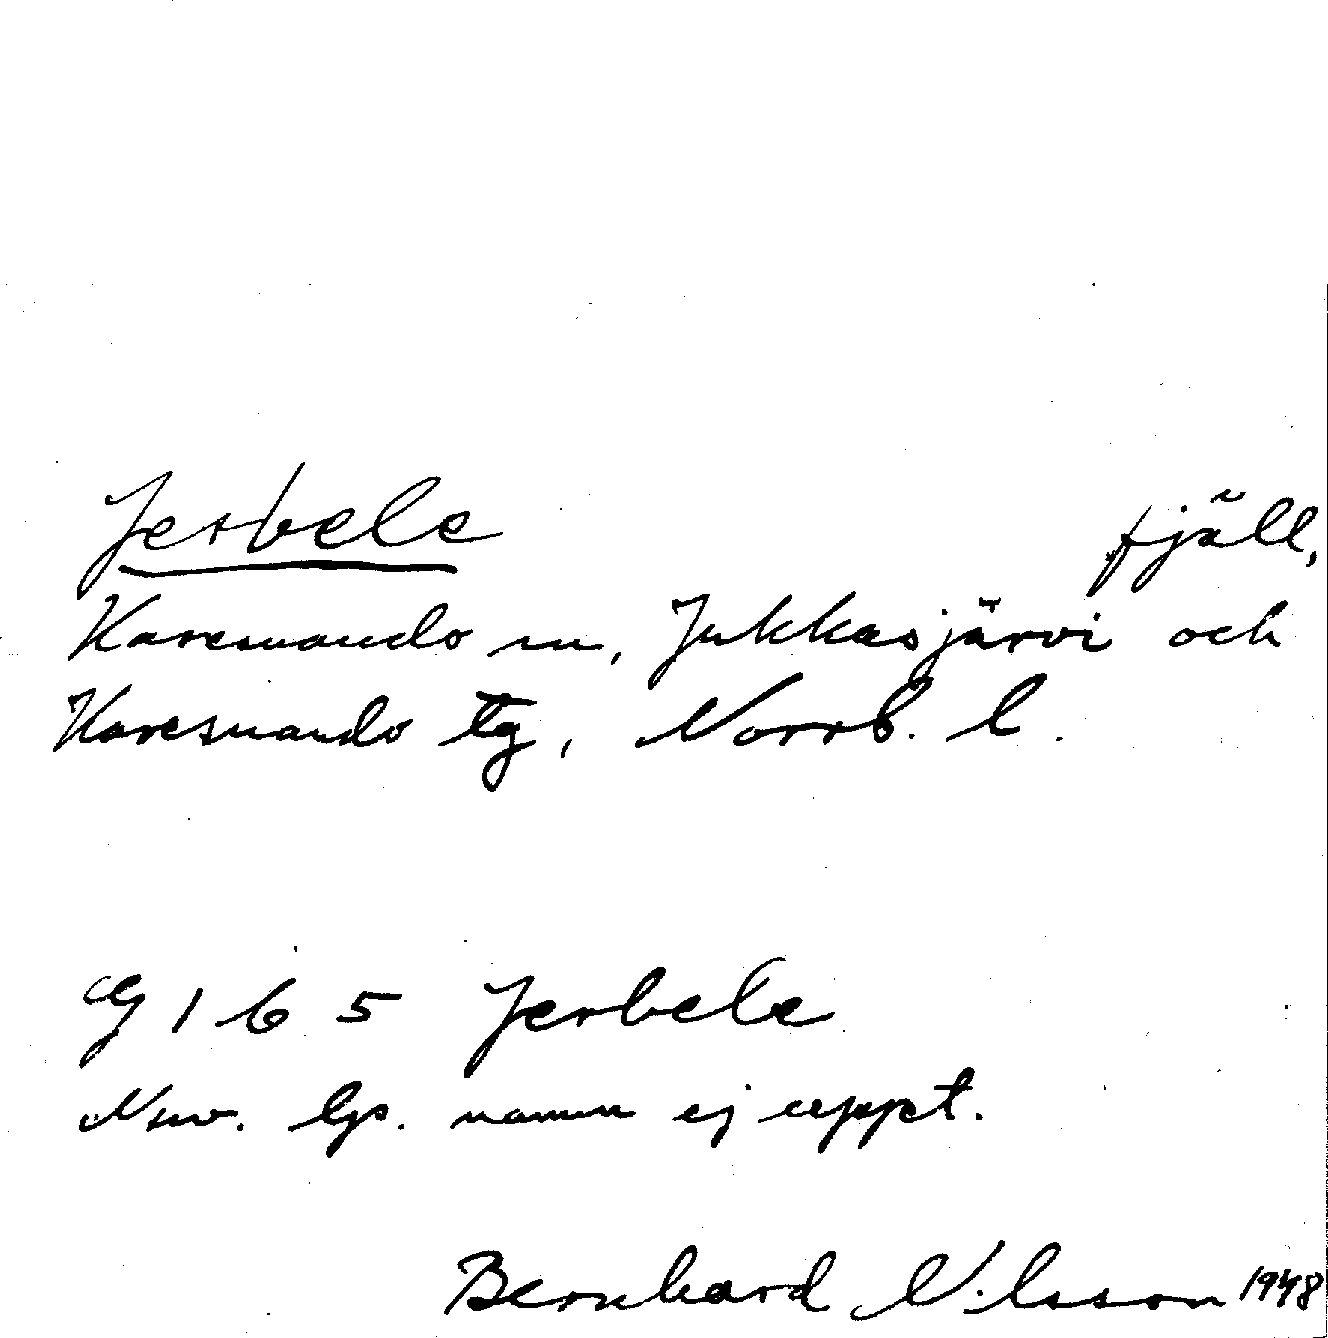 Jerbele fjäll,
Karesuando sn, Jukkasjärvi och
Karesuando tg, Norrb. l.
G 1 6 5 Jerbele
Nuv. lp. namn ej uppt.
Bernhard Nilsson 1948